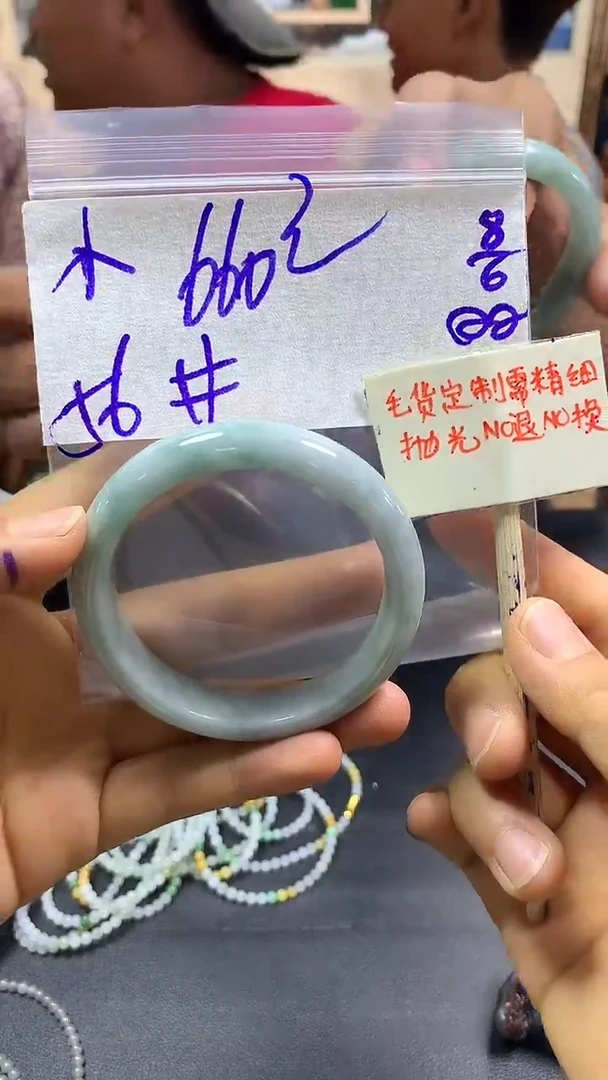 木 660元
56#
8/6
毛货定制需精细
抛光NO退NO换